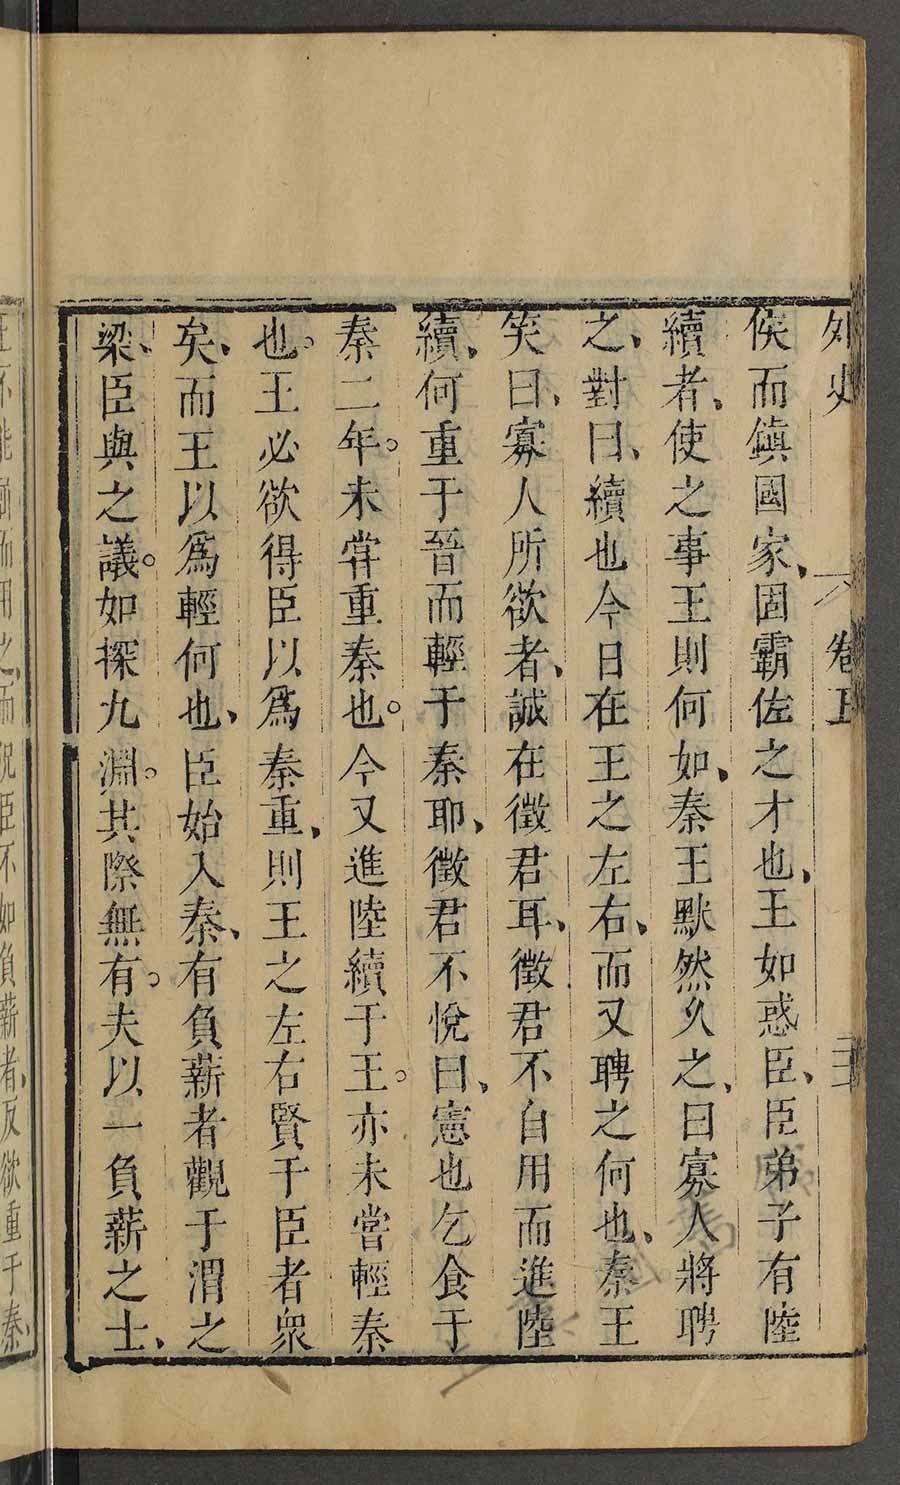 外史 卷上 三
侯而鎮國家、固霸佐之才也、王如惑臣、臣弟子有陸
續者、使之事王則何如、秦王默然久之、曰寡人將聘
之、對曰、續也今日在王之左右、而又聘之何也、秦王
笑曰、寡人所欲者、誠在徵君耳、徵君不自用而進陸
續、何重于晉而輕于秦耶、徵君不悅曰、憲也乞食于
秦二年。未嘗重秦也。今又進陸續于王。亦未嘗輕秦
也。王必欲得臣以爲秦重、則王之左右賢于臣者衆
矣、而王以爲輕何也、臣始入秦、有負薪者觀于渭之
梁、臣與之議。如探九淵。其際無有。夫以一負薪之士、